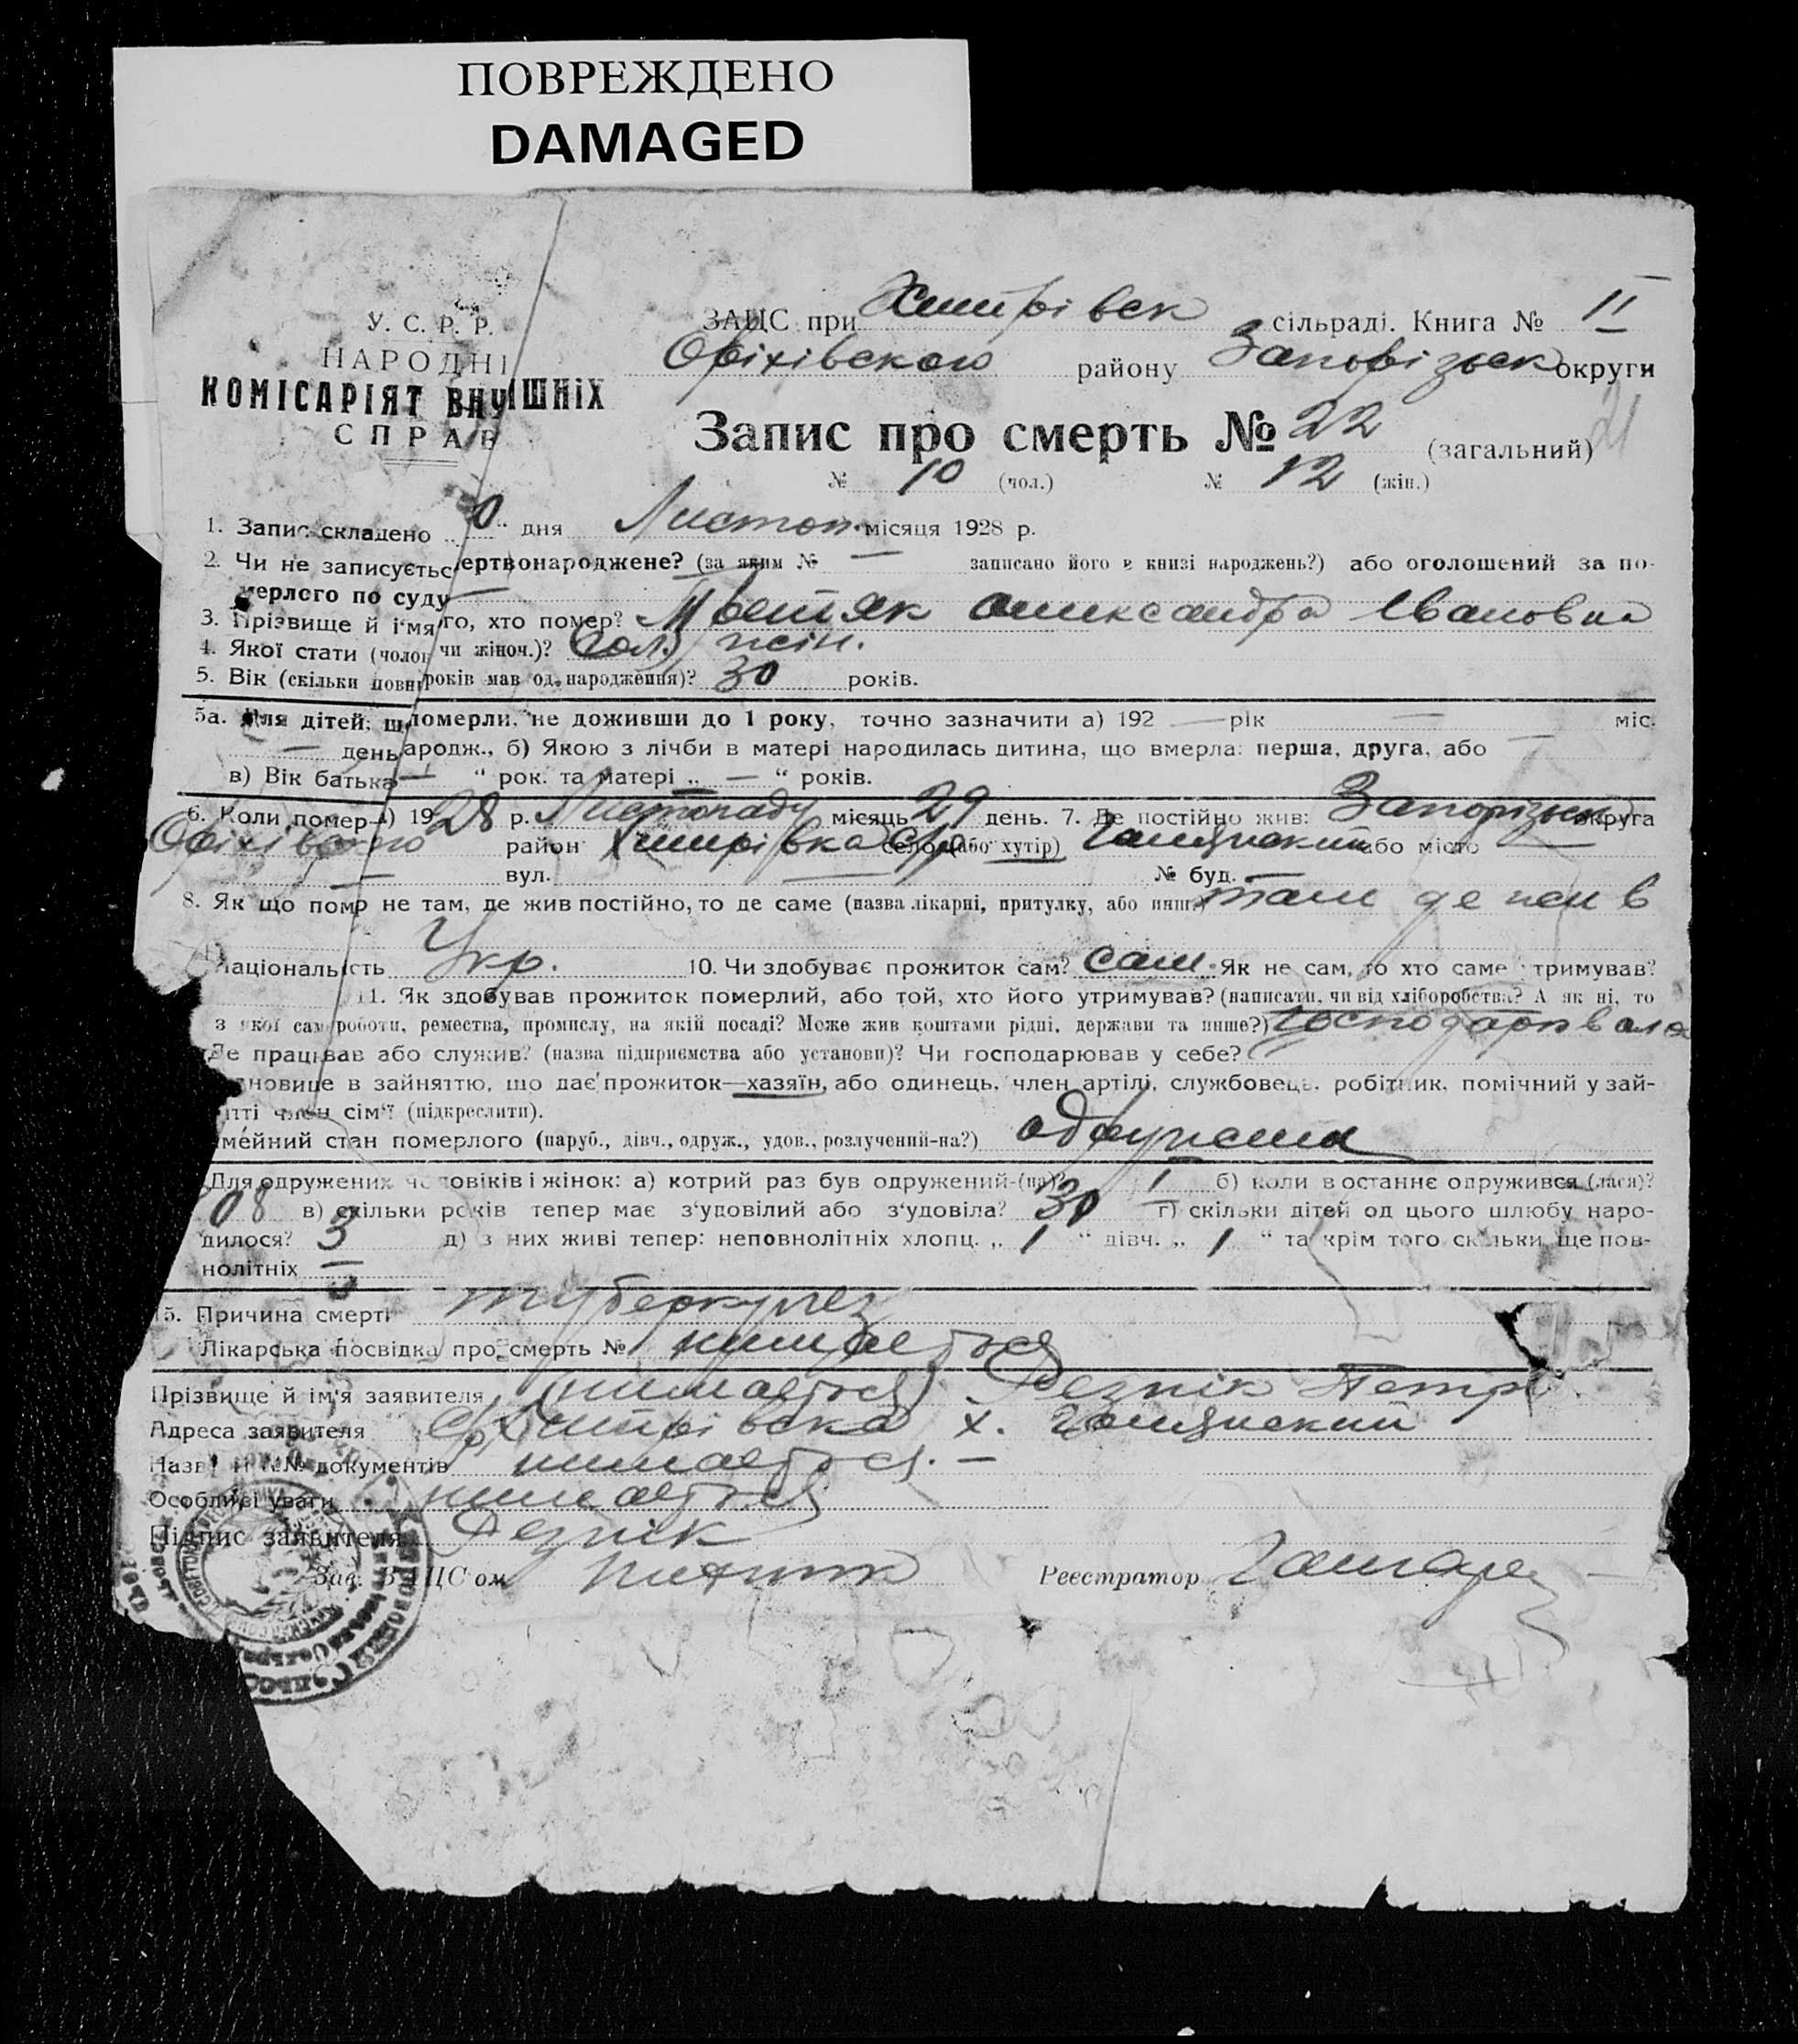 ПОВРЕЖДЕНО
DAMAGED
У. С. Р. Р.
НАРОДНІ
КОМІСАРІЯТ ВНУІШНІХ
СПРАВ
ЗАЦС при Хитрівськ сільраді. Книга № II
Оріхівського району Запорізськ округи
Запис про смерть № 22 (загальний) 21
№ 10 (чол.) № 12 (жін.)
1. Запис складено 0 “ дня Листоп. місяця 1928 р.
2. Чи не записуєтьс ертвонароджене? (за яким № — записано його в книзі народжень?) або оголошений за по-
мерлого по суду —
3. Прізвище й ім'я го, хто помер? Александра Івановна
4. Якої стати (чолов чи жіноч.)? жін.
5. Вік (скільки повни років мав од народження)? 30 років.
5а. Для дітей, щ померли, не доживши до 1 року, точно зазначити а) 192 — рік — міс.
— день ародж., б) Якою з лічби в матері народилась дитина, що вмерла: перша, друга, або —
в) Вік батька — “ рок. та матері „ — “ років.
6. Коли помер-а) 1928 р. Листопаду місяць 29 день. 7. Де постійно жив: Запорізськ округа
Оріхівського район Хитрівка с/р село (або хутір) або місто —
— вул. — № буд. —
8. Як що помр не там, де жив постійно, то де саме (назва лікарні, притулку, або инш.) там де жив
Національність Укр. 10. Чи здобуває прожиток сам? сам. Як не сам, то хто саме тримував?
11. Як здобував прожиток померлий, або той, хто його утримував? (написати, чи від хліборобства? А як ні, то
з якої сам роботи, ремества, промислу, на якій посаді? Може жив коштами рідні, держави та инше?) Господарювала
Де працював або служив? (назва підприємства або установи)? Чи господарював у себе?
новище в зайняттю, що дає прожиток—хазяїн, або одинець, член артілі, службовець, робітник, помічний у зай-
тті член сім'ї (підкреслити).
мейний стан померлого (паруб., дівч., одруж., удов., розлучений-на?) одружена
Для одружених чоловіків і жінок: а) котрий раз був одружений-(на)? I б) коли востаннє одружився (лася)?
08 в) скільки років тепер має з'удовілий або з'удовіла? 30 г) скільки дітей од цього шлюбу наро-
дилося? 3 д) з них живі тепер: неповнолітніх хлопц. „ 1 “ дівч. „ 1 “ та крім того скільки ще пов-
нолітніх —
15. Причина смерті туберкульоз
Лікарська посвідка про смерть № нимається
Прізвище й ім'я заявителя (нимається) Резнік Петр
Адреса заявителя с/р Хитрівска х.
Назв й №№ документів нимається. —
Особливі уваги нимається
Підпис заявителя Резнік
Зав. ВЗАЦС'ом Реєстратор